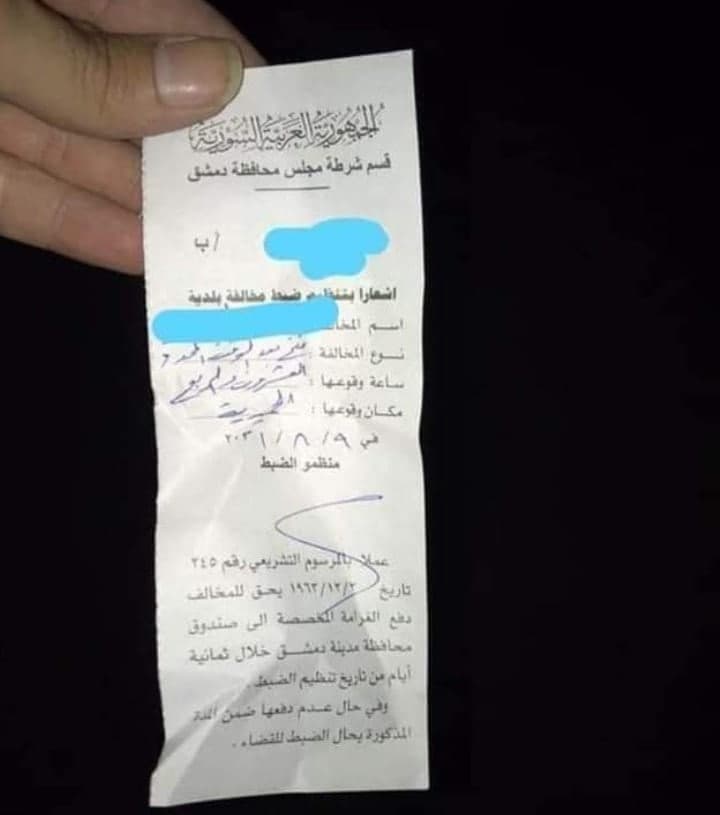 الجمهورية العربية السورية
قسم شرطة مجلس محافظة دمشق
/ب
اشعارا بتنظيم ضبط مخالفة بلدية
اسم
نوع المخالفة : فتح بعد الوقت المحدد
ساعة وقوعها : العشرون والربع
مكان وقوعها :
في ٩ / ٨ /
منظمو الضبط
عملا بالمرسوم التشريعي رقم ٢٤٥
تاريخ ١٩٦٣/١٢/٢ يحق للمخالف
دفع الغرامة المخصصة الى صندوق
محافظة مدينة دمشق خلال ثمانية
أيام من تاريخ تنظيم الضبط .
وفي حال عدم دفعها ضمن المدة
المذكورة يحال الضبط للقضاء .